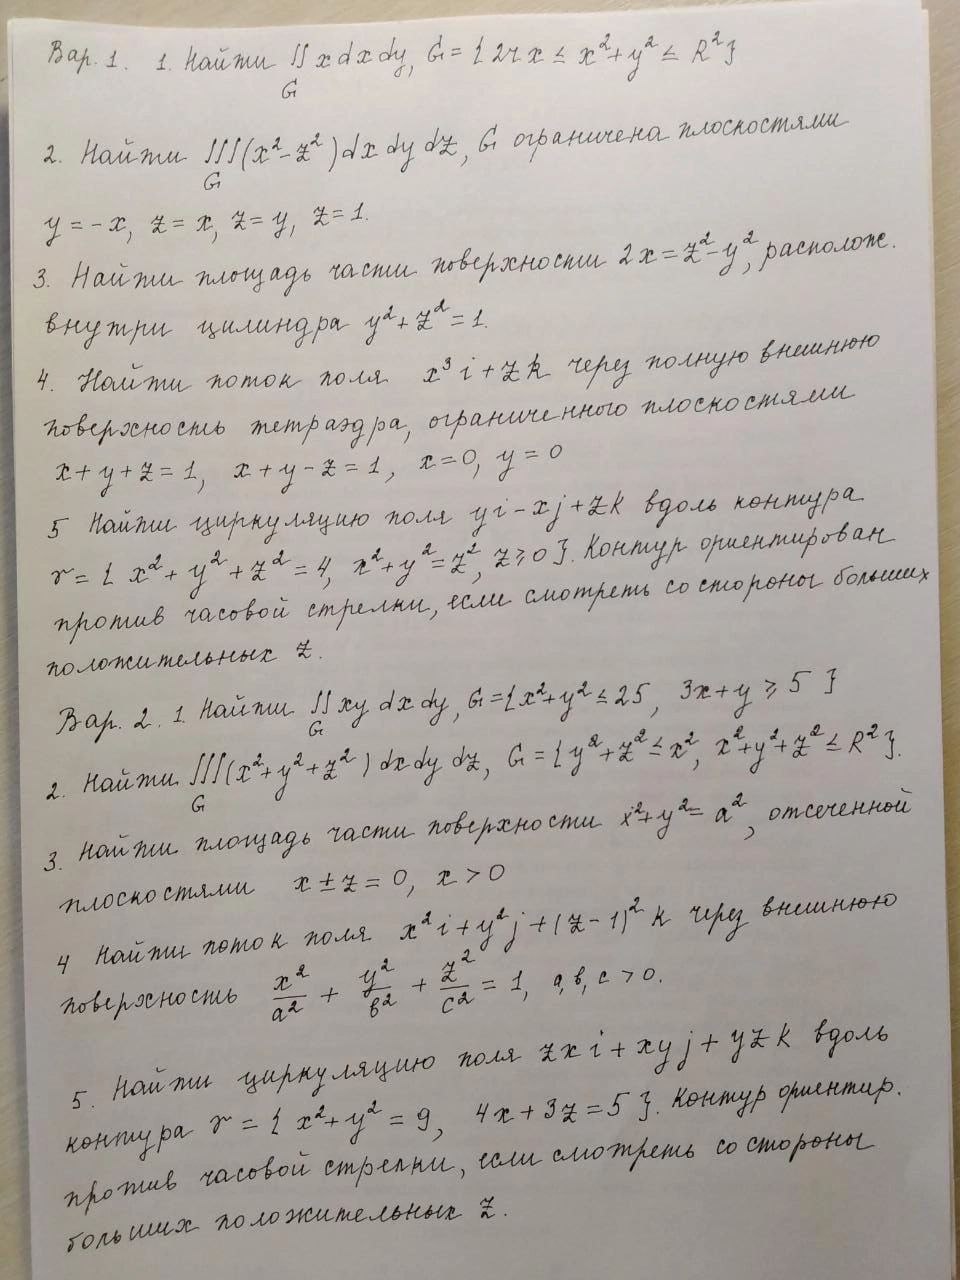 Вар. 1. 1. Найти ∬ x dx dy, G = { 2rx ≤ x² + y² ≤ R² }
G
2. Найти ∭ (x² - z²) dx dy dz, G ограничена плоскостями
G
y = -x, z = x, z = y, z = 1.
3. Найти площадь части поверхности 2x = z² - y², располож.
внутри цилиндра y² + z² = 1.
4. Найти поток поля x³ i + z k через полную внешнюю
поверхность тетраэдра, ограниченного плоскостями
x + y + z = 1, x + y - z = 1, x = 0, y = 0
5 Найти циркуляцию поля y i - x j + z k вдоль контура
γ = { x² + y² + z² = 4, x² + y² = z², z ≥ 0 }. Контур ориентирован
против часовой стрелки, если смотреть со стороны больших
положительных z.
Вар. 2. 1. Найти ∬ xy dx dy, G = { x² + y² ≤ 25, 3x + y ≥ 5 }
G
2. Найти ∭ (x² + y² + z²) dx dy dz, G = { y² + z² ≤ x², x² + y² + z² ≤ R² }.
G
3. Найти площадь части поверхности x² + y² = a², отсеченной
плоскостями x ± z = 0, x > 0
4 Найти поток поля x² i + y² j + (z - 1)² k через внешнюю
поверхность x²/a² + y²/b² + z²/c² = 1, a, b, c > 0.
5. Найти циркуляцию поля zx i + xy j + yz k вдоль
контура γ = { x² + y² = 9, 4x + 3z = 5 }. Контур ориентир.
против часовой стрелки, если смотреть со стороны
больших положительных z.